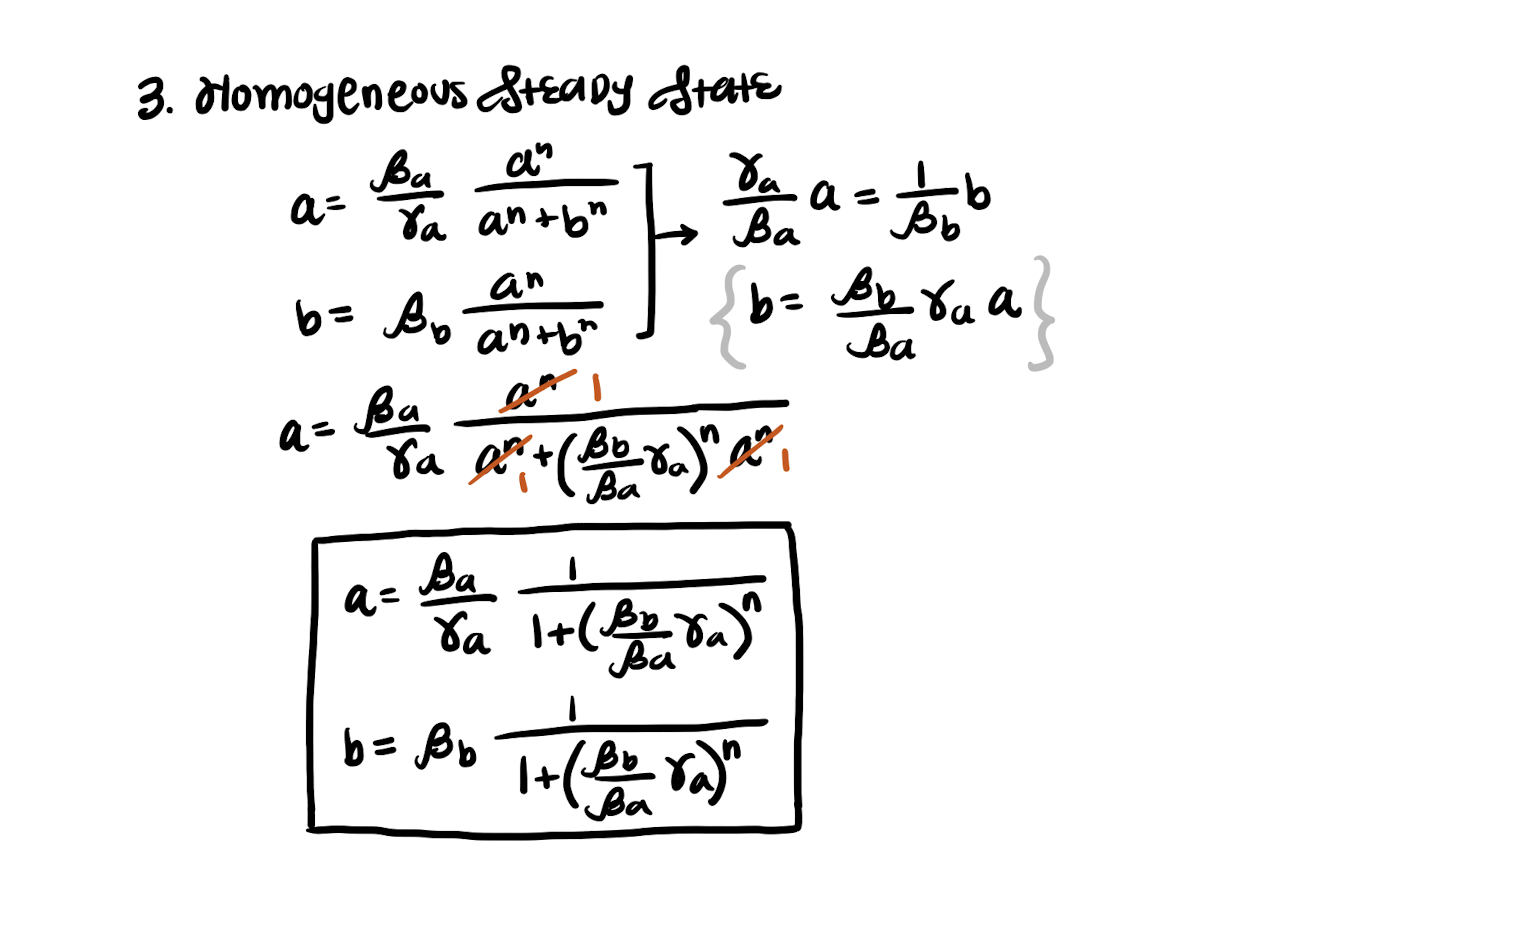 3. Homogeneous Steady State
a = βa/γa aⁿ/(aⁿ+bⁿ) → γa/βa a = 1/βb b
b = βb aⁿ/(aⁿ+bⁿ) { b = βb/βa γa a }
a = βa/γa aⁿ 1/(aⁿ 1 + (βb/βa γa)ⁿ aⁿ 1)
a = βa/γa 1/(1+(βb/βa γa)ⁿ)
b = βb 1/(1+(βb/βa γa)ⁿ)